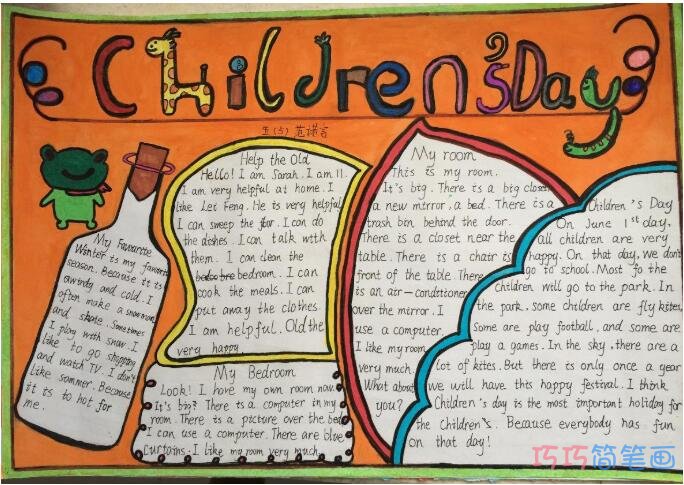 Children's Day
五(5) 范诺言
Help the Old
Hello! I am Sarah. I am 11.
I am very helpful at home. I
like Lei Feng. He is very helpful
I can sweep the floor. I can do
the dishes. I can talk with
them. I can clean the
bedroom. I can
cook the meals. I can
put away the clothes
I am helpful. Old the
very happy.
My room
This is my room.
It's big. There is a big closet
a new mirror, a bed. There is a
trash bin behind the door.
There is a closet near the
table. There is a chair is
front of the table. There
is an air-condstioner
over the mirror. I
use a computer.
I like my room
very much.
What about
you?
Children's Day
On June 1st day,
all children are very
happy. On that day, we don't
go to school. Most fo the
children will go to the park. In
the park, some children are fly kites,
Some are play football, and some are
play a games. In the sky, there are a
lot of kites. But there is only once a year
we will have this happy festival. I think
Children's day is the most important holiday for
the children's. Because everybody has fun
on that day!
My Favourite
Winter is my favorite
season. Because it is
windy and cold. I
often make a snowman
and skate. Sometimes
I play with snow. I
like to go shopping
and watch TV. I don't
like sommer. Because
it is to hot for
me.
My Bedroom
Look! I have my own room now.
It's big? There is a computer in my
room. There is a picture over the bed
I can use a computer. There are blue
curtains. I like my room very much.
巧巧简笔画